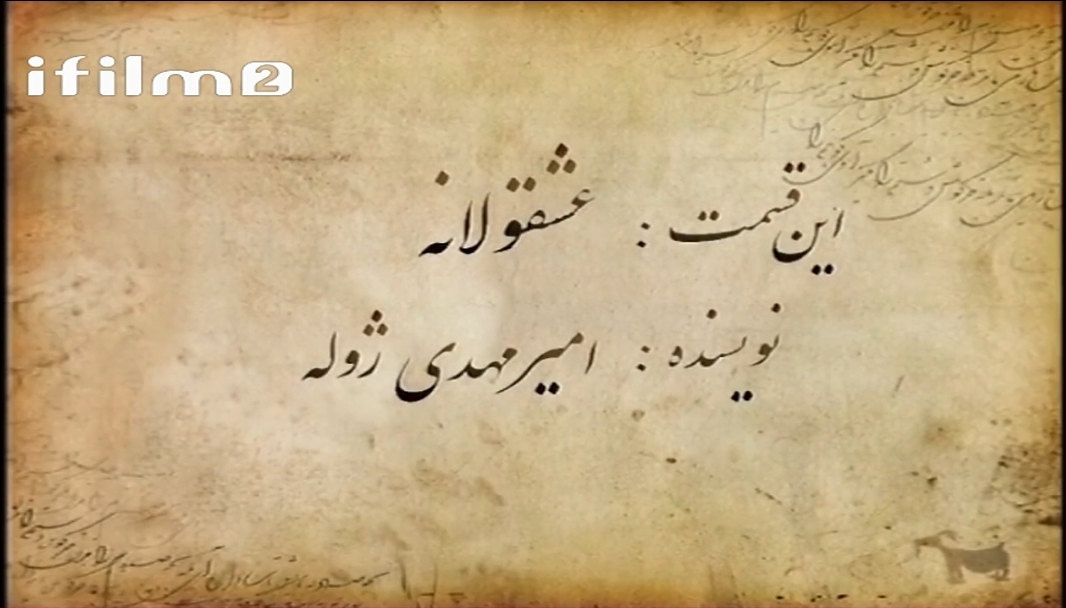 ifilm2
این قسمت : عشقولانه
نویسنده : امیرمهدی ژوله